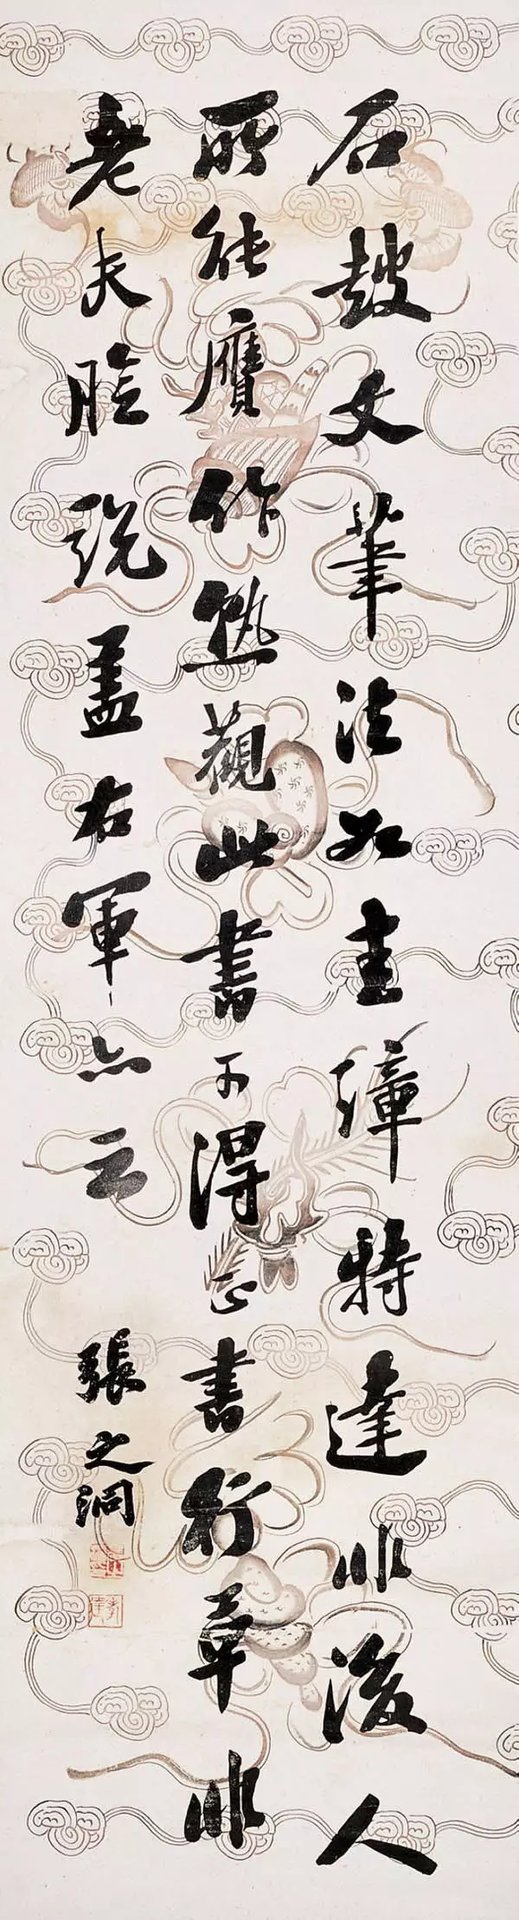 石鼓文筆法如圭璋特達非後人
所能贋作熟觀此書可得正書行草非
老夫臆說盖右軍亦云
張之洞
孝達